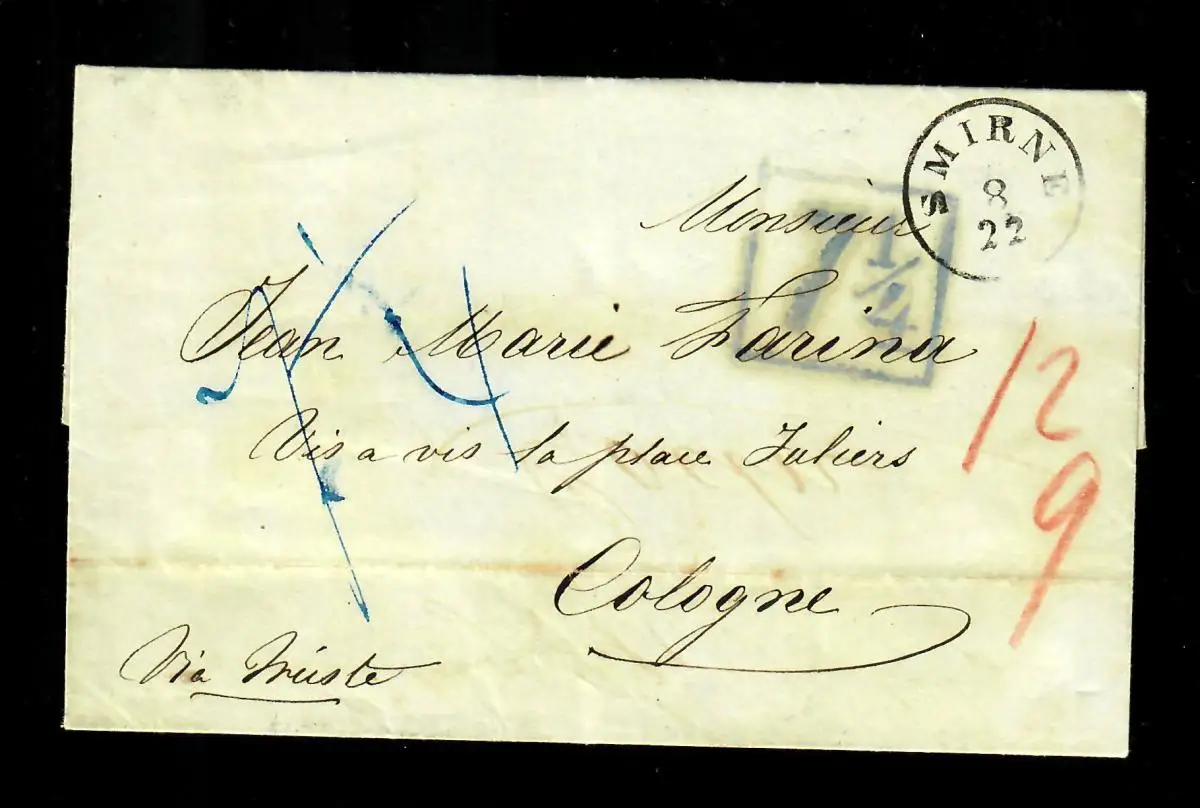 SMIRNE
8
22
Monsieur
7 1/4
Jean Marie Farina
Vis a vis la place Juliers
Cologne
Via Trieste
12
9